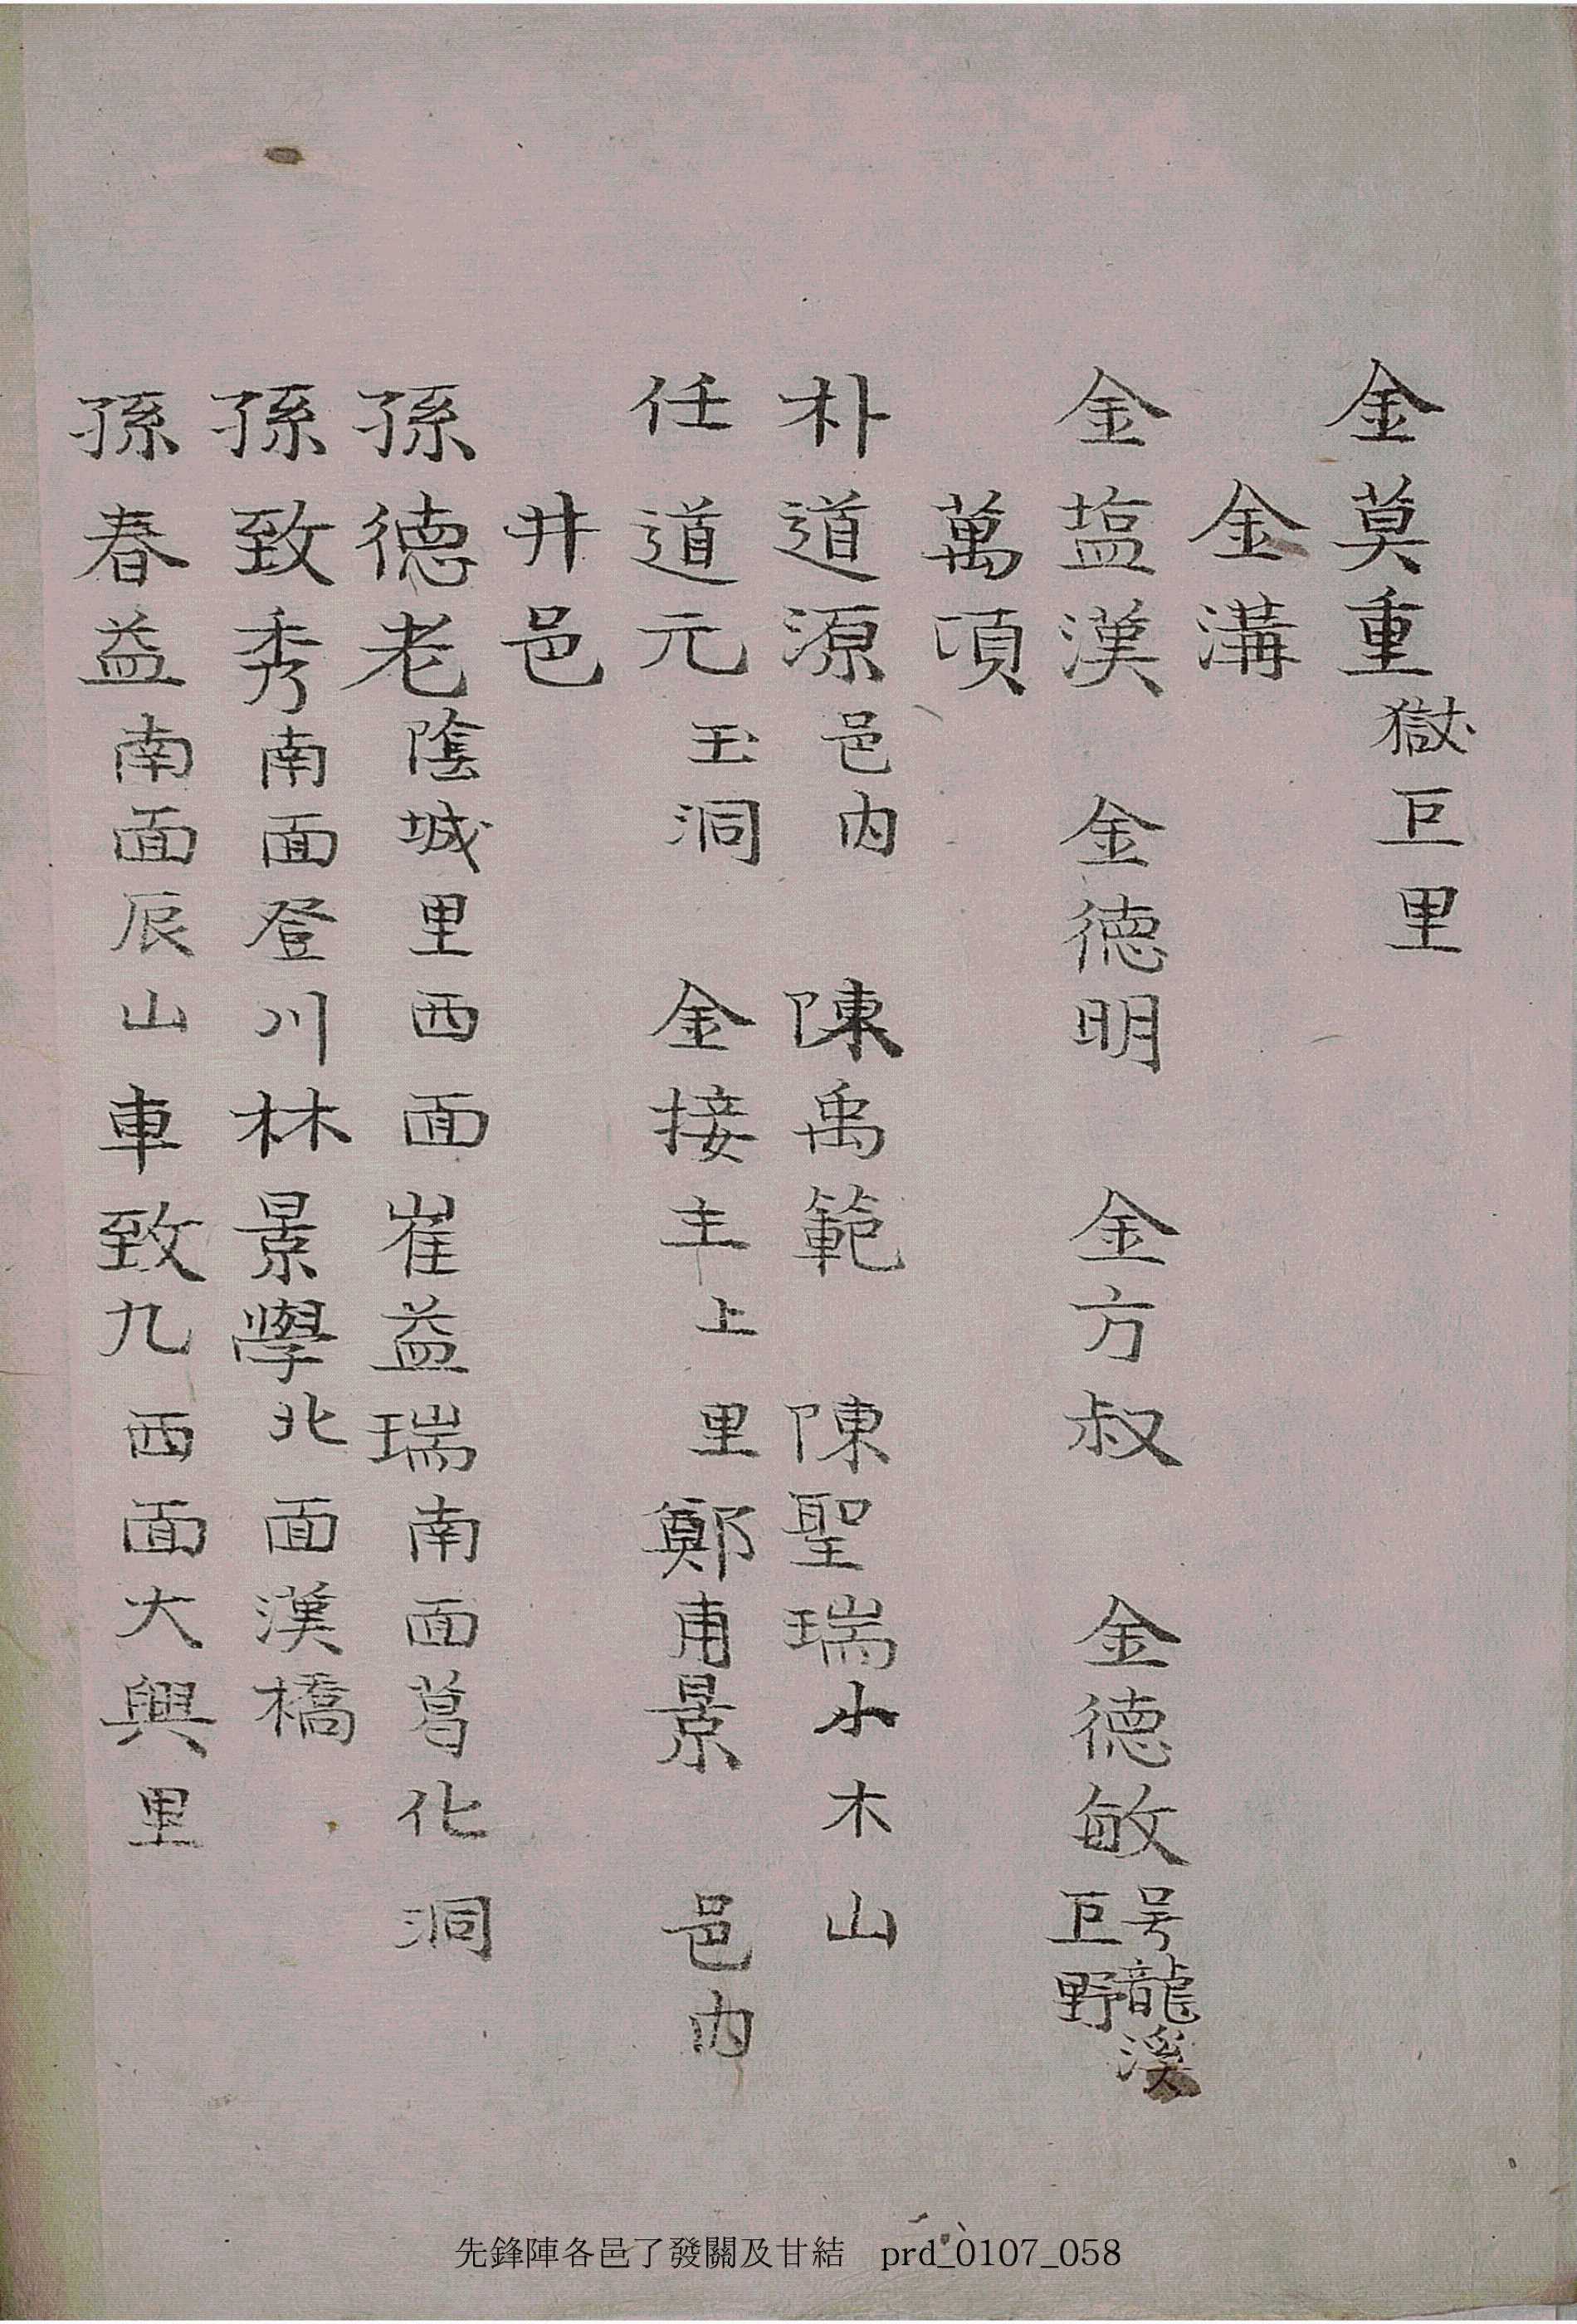 金莫重獄巨里
金溝
金塩漢 金德明 金方叔 金德敏号龍溪巨野
萬頃
朴道源邑內 陳禹範 陳聖瑞小木山
任道元玉洞 金接主上里鄭甫景 邑內
井邑
孫德老陰城里西面崔益瑞南面葛化洞
孫致秀南面登川林景學北面漢橋
孫春益南面辰山車致九西面大興里
先鋒陣各邑了發關及甘結 prd_0107_058